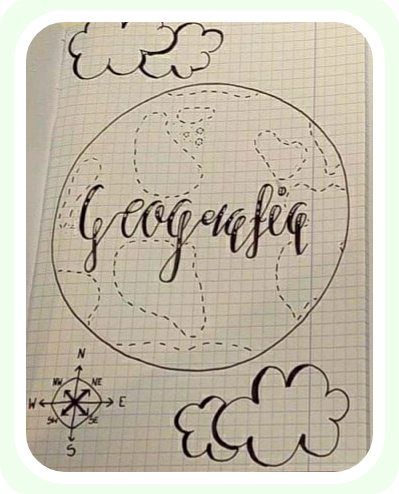 Geografia
N
NW NE
W E
SW SE
S